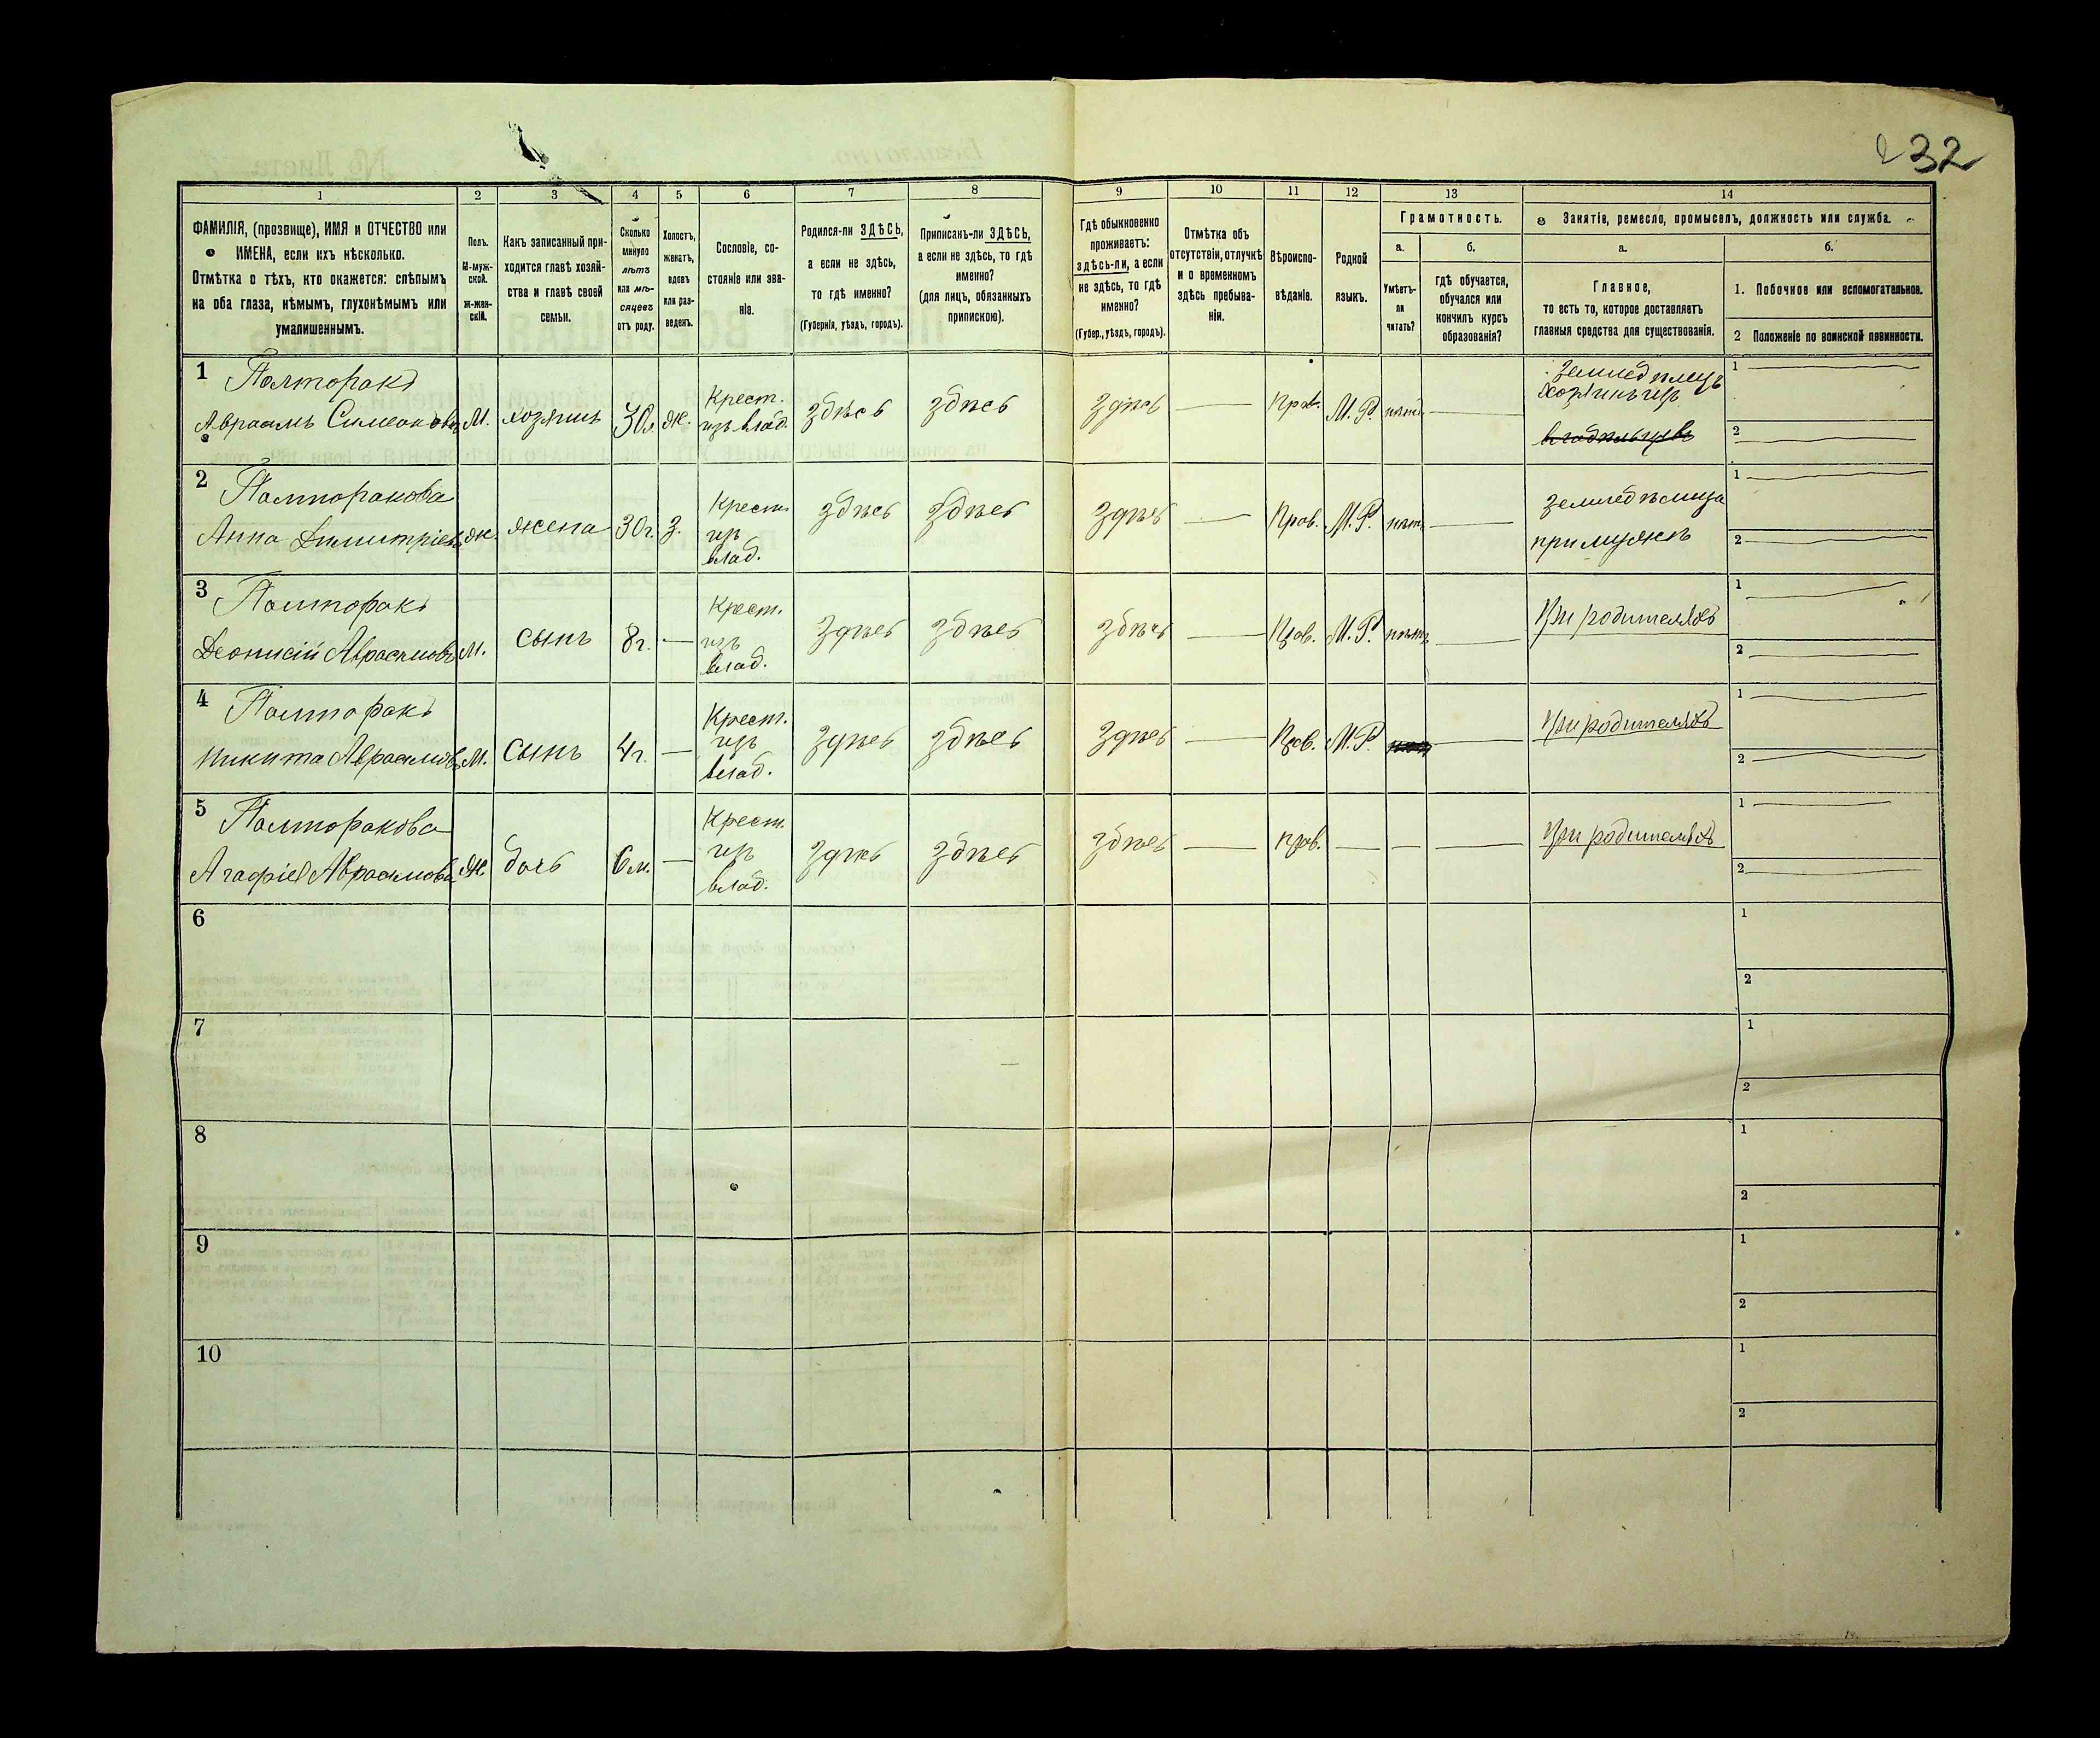 232
1
2
3
4
5
6
7
8
9
10
11
12
13
14
ФАМИЛІЯ, (прозвище), ИМЯ и ОТЧЕСТВО или
ИМЕНА, если ихъ нѣсколько.
Отмѣтка о тѣхъ, кто окажется: слѣпымъ
на оба глаза, нѣмымъ, глухонѣмымъ или
умалишеннымъ.
Полъ.
М-муж-
ской.
ж-жен-
скій.
Какъ записанный при-
ходится главѣ хозяй-
ства и главѣ своей
семьи.
Сколько
минуло
лѣтъ
или мѣ-
сяцевъ
отъ роду.
Холостъ,
женатъ,
вдовъ
или раз-
веденъ.
Сословіе, со-
стояніе или зва-
ніе.
Родился-ли ЗДѢСЬ,
а если не здѣсь,
то гдѣ именно?
(Губернія, уѣздъ, городъ).
Приписанъ-ли ЗДѢСЬ,
а если не здѣсь, то гдѣ
именно?
(для лицъ, обязанныхъ
припискою).
Гдѣ обыкновенно
проживаетъ:
здѣсь-ли, а если
не здѣсь, то гдѣ
именно?
(Губер., уѣздъ, городъ).
Отмѣтка объ
отсутствіи, отлучкѣ
и о временномъ
здѣсь пребыва-
ніи.
Вѣроиспо-
вѣданіе.
Родной
языкъ.
Грамотность.
а.
Умѣетъ-
ли
читать?
б.
гдѣ обучается,
обучался или
кончилъ курсъ
образованія?
Занятіе, ремесло, промыселъ, должность или служба.
а.
Главное,
то есть то, которое доставляетъ
главныя средства для существованія.
б.
1. Побочное или вспомогательное.
2 Положеніе по воинской повинности.
1 Полторакъ
Авраамъ Симеоновъ М. хозяинъ 30 л. Ж. Крест. изъ влад. здѣсь здѣсь здѣсь — Прав. М. Р. нѣтъ —
земледѣлецъ
хозяинъ изъ
владѣльцевъ
1
2
2 Полторакова
Анна Димитріева ж. жена 30 г. З. Крест. изъ влад. здѣсь здѣсь здѣсь — Прав. М. Р. нѣтъ —
земледѣлица
при мужѣ
1
2
3 Полторакъ
Деонисій Авраамовъ М. сынъ 8 г. — Крест. изъ влад. здѣсь здѣсь здѣсь — Прав. М. Р. нѣтъ —
При родителяхъ
1
2
4 Полторакъ
Никита Авраамовъ М. сынъ 4 г. — Крест. изъ влад. здѣсь здѣсь здѣсь — Прав. М. Р. —
При родителяхъ
1
2
5 Полторакова
Агафія Авраамова Ж. дочь 6 м. — Крест. изъ влад. здѣсь здѣсь здѣсь — Прав. — — —
При родителяхъ
1
2
6
1
2
7
1
2
8
1
2
9
1
2
10
1
2